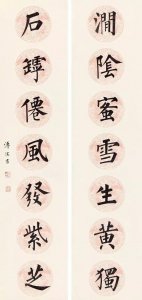 澗陰蜜雪生黃獨
石罅僊風發紫芝